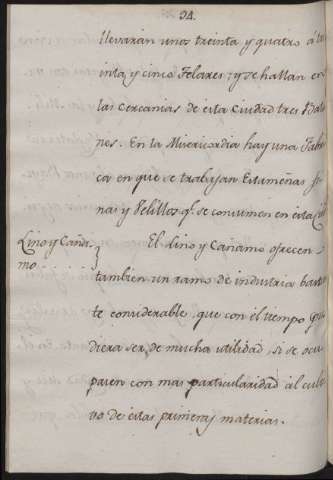 34.
llevarán unos treinta y quatro á tre
inta y cinco Telares; y se hallan en
las cercanias de esta Ciudad tres Bata
nes. En la Misericordia hay una Fabri
ca en que se trabajan Estameñas, fi
nas y Pelillos q.e se consumen en esta Ciu
Lino y Caña
mo
El Lino y Cañamo ofrecen
tambien un ramo de industria bastan
te considerable, que con el tiempo pu
diera ser de mucha utilidad, si se ocu
pasen con mas particularidad al culti
vo de estas primeras materias.